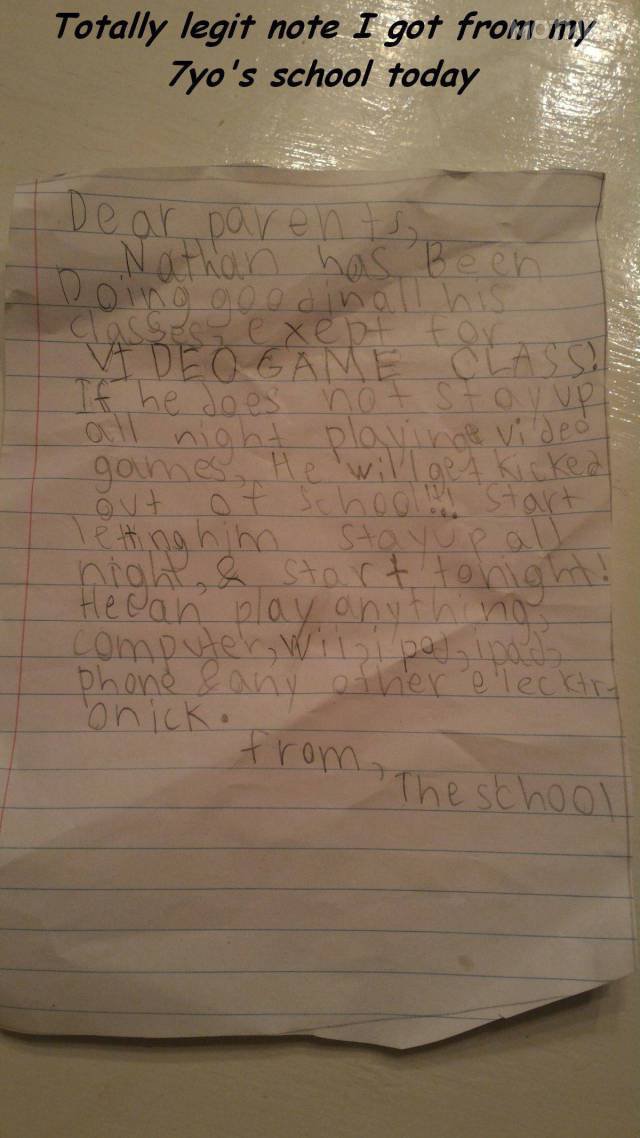 Totally legit note I got from my
7yo's school today
Dear parents,
Nathan has Been
Doing good in all his
classes, exept for
VIDEO GAME CLASS!
If he does not stay up
all night playing video
games, He will get kicked
out of school!!! Start
letting him stay up all
night, & start tonight!
He can play anything,
computer, wii, ipod, ipad,
phone & any other elecktr-
onick.
from,
The school